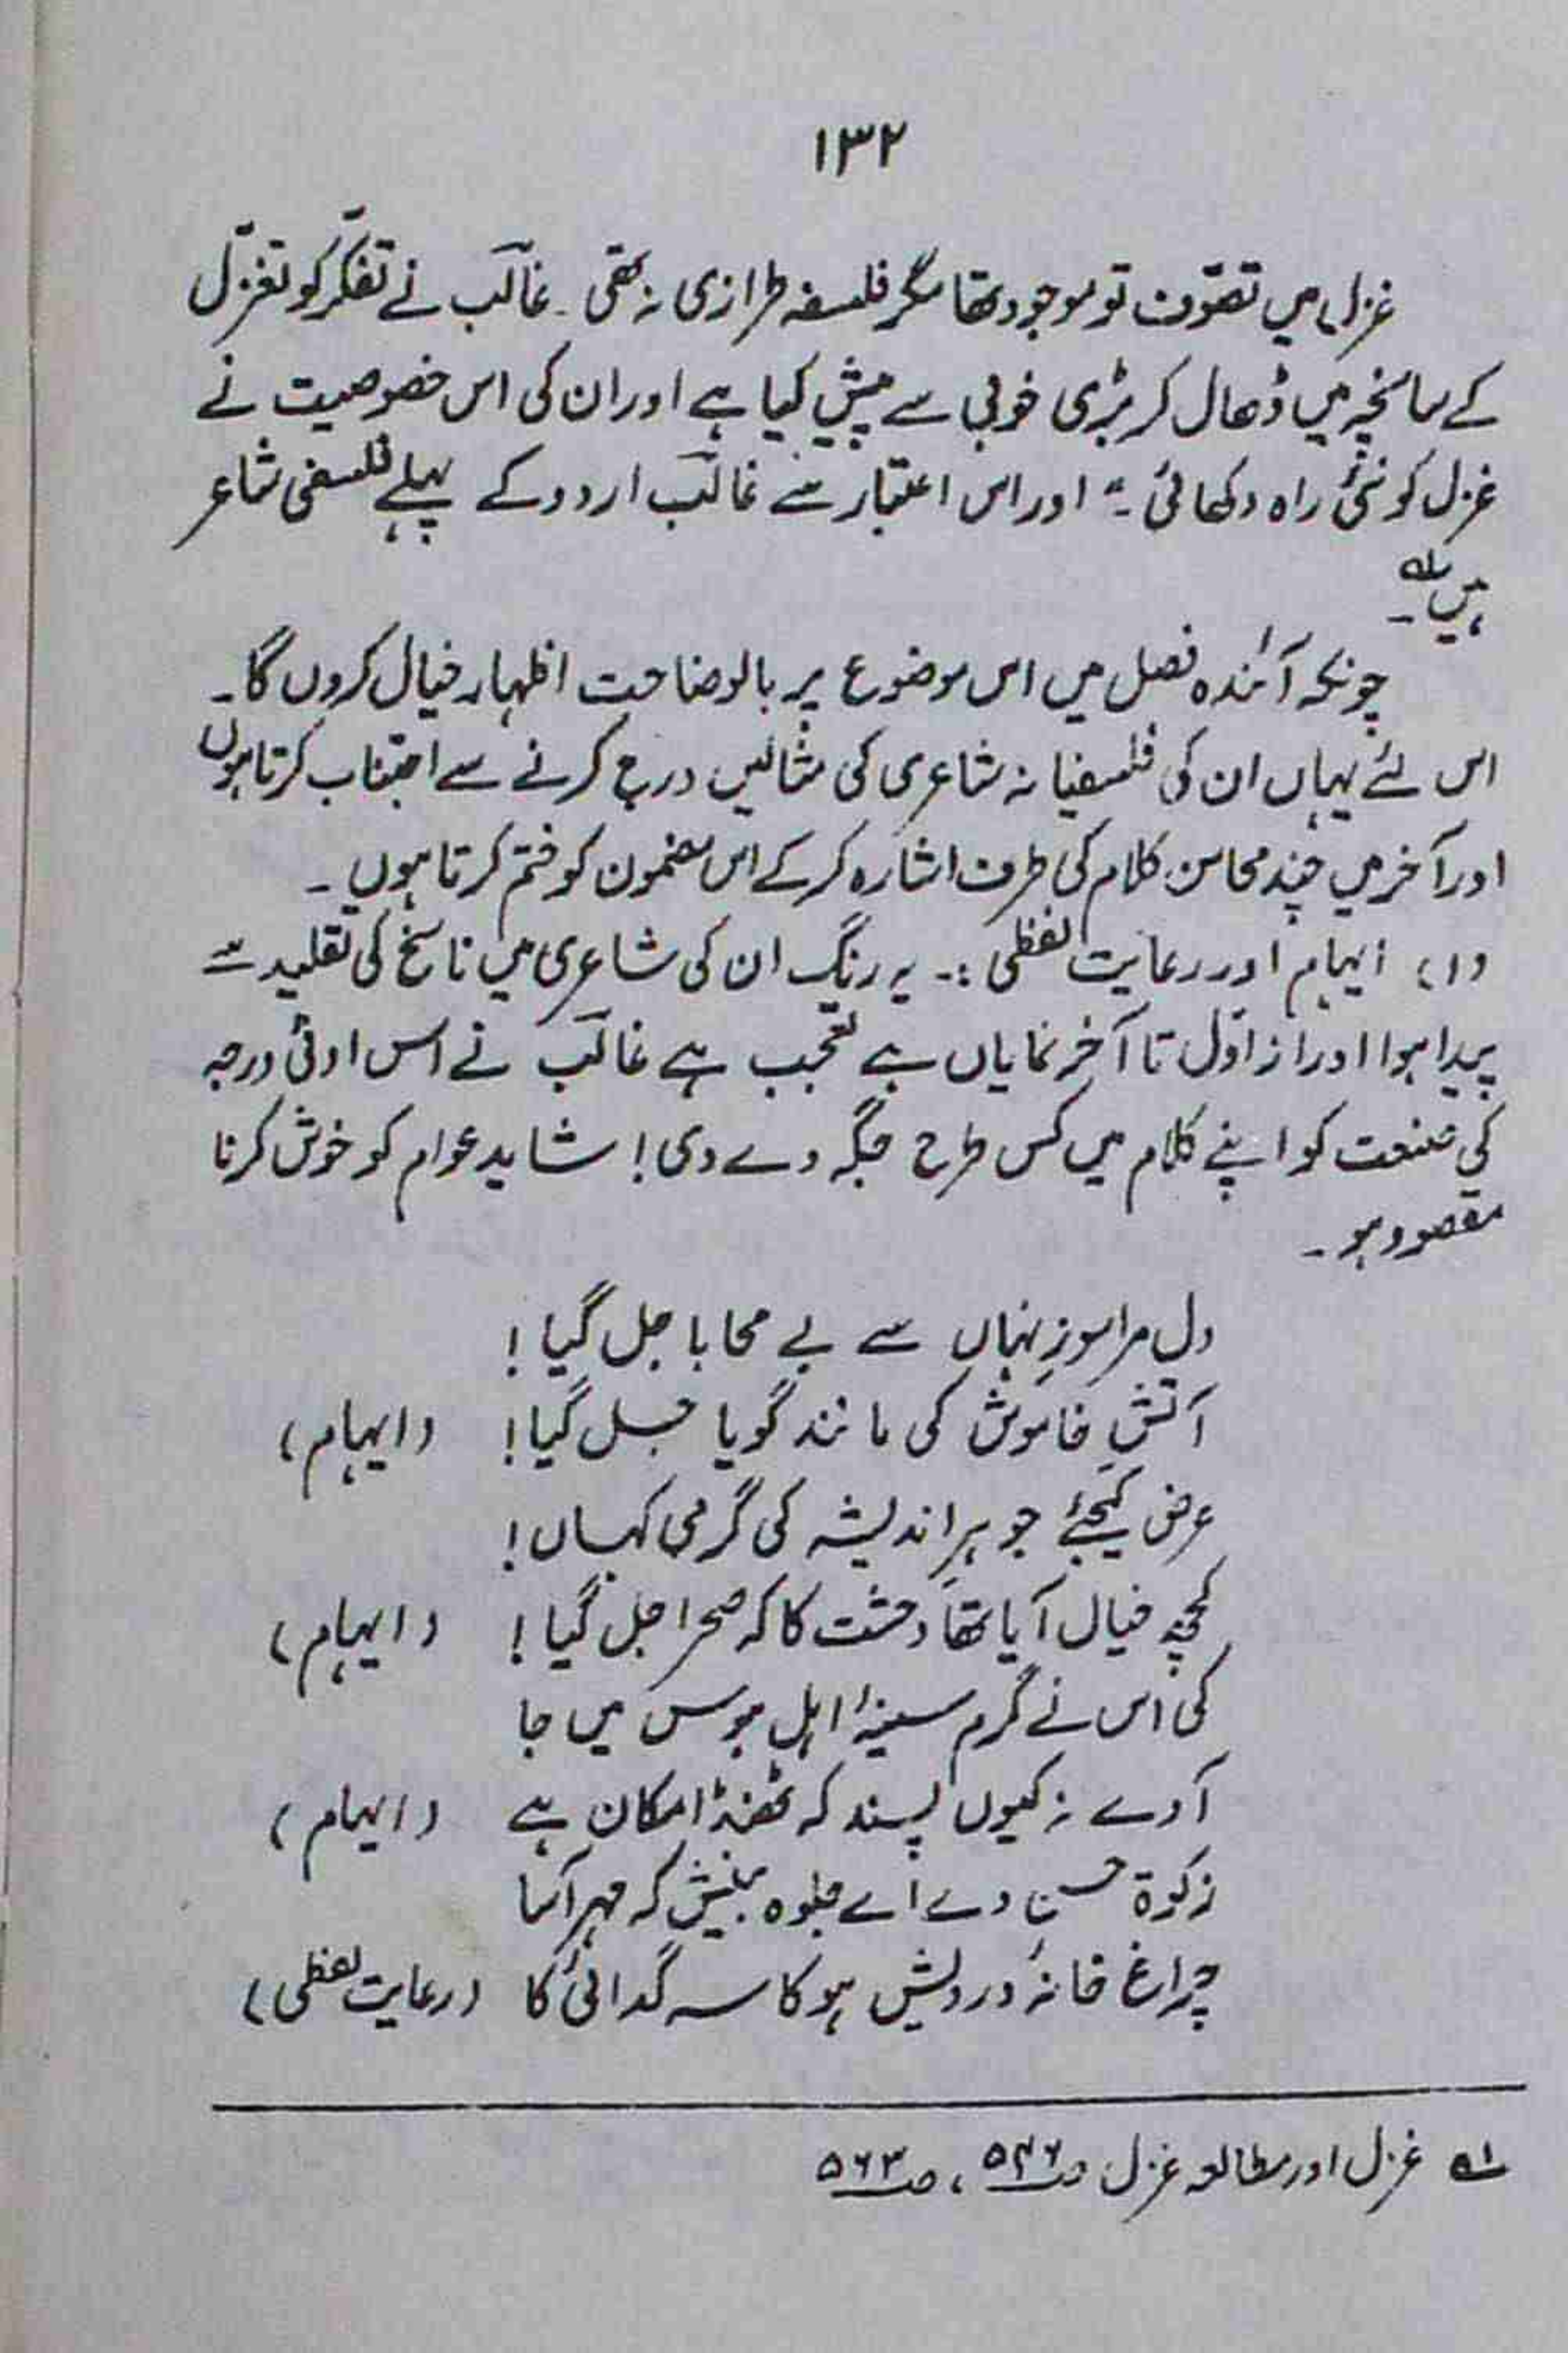 ۱۳۲
غزل میں تصوّف تو موجود تھا مگر فلسفہ طرازی نہ تھی۔ غالبؔ نے تفکّر کو تغزّل
کے سانچہ میں ڈھال کر بڑی خوبی سے پیش کیا ہے اور ان کی اس خصوصیت نے
غزل کو نئی راہ دکھائی۔" اور اس اعتبار سے غالبؔ اردو کے پہلے فلسفی شاعر
ہیں۔ ؎۱
چونکہ آئندہ فصل میں اس موضوع پر بالوضاحت اظہار خیال کروں گا۔
اس لئے یہاں ان کی فلسفیانہ شاعری کی مثالیں درج کرنے سے اجتناب کرتا ہوں
اور آخر میں چند محاسن کلام کی طرف اشارہ کرکے اس مضمون کو ختم کرتا ہوں۔
(۱) ایہام اور رعایت لفظی :۔ یہ رنگ ان کی شاعری میں ناسخ کی تقلید سے
پیدا ہوا اور از اوّل تا آخر نمایاں ہے تعجب ہے غالبؔ نے اس ادنیٰ درجہ
کی صنعت کو اپنے کلام میں کس طرح جگہ دے دی! شاید عوام کو خوش کرنا
مقصود ہو۔
دل مرا سوزِ نہاں سے بے محابا جل گیا!
آتشِ خاموش کی مانند گویا جل گیا! (ایہام)
عرض کیجئے جوہرِ اندیشہ کی گرمی کہاں!
کچھ خیال آیا تھا وحشت کا کہ صحرا جل گیا! (ایہام)
کی اس نے گرم سینۂ اہلِ ہوس میں جا
آوے نہ کیوں پسند کہ ٹھنڈا مکان ہے (ایہام)
زکوٰۃ حسن دے اے جلوہ بینش کہ مہر آسا
چراغ خانۂ درویش ہو کاسہ گدائی کا (رعایت لفظی)
؎۱ غزل اور مطالعہ غزل ص۵۴۶، ص۵۶۳